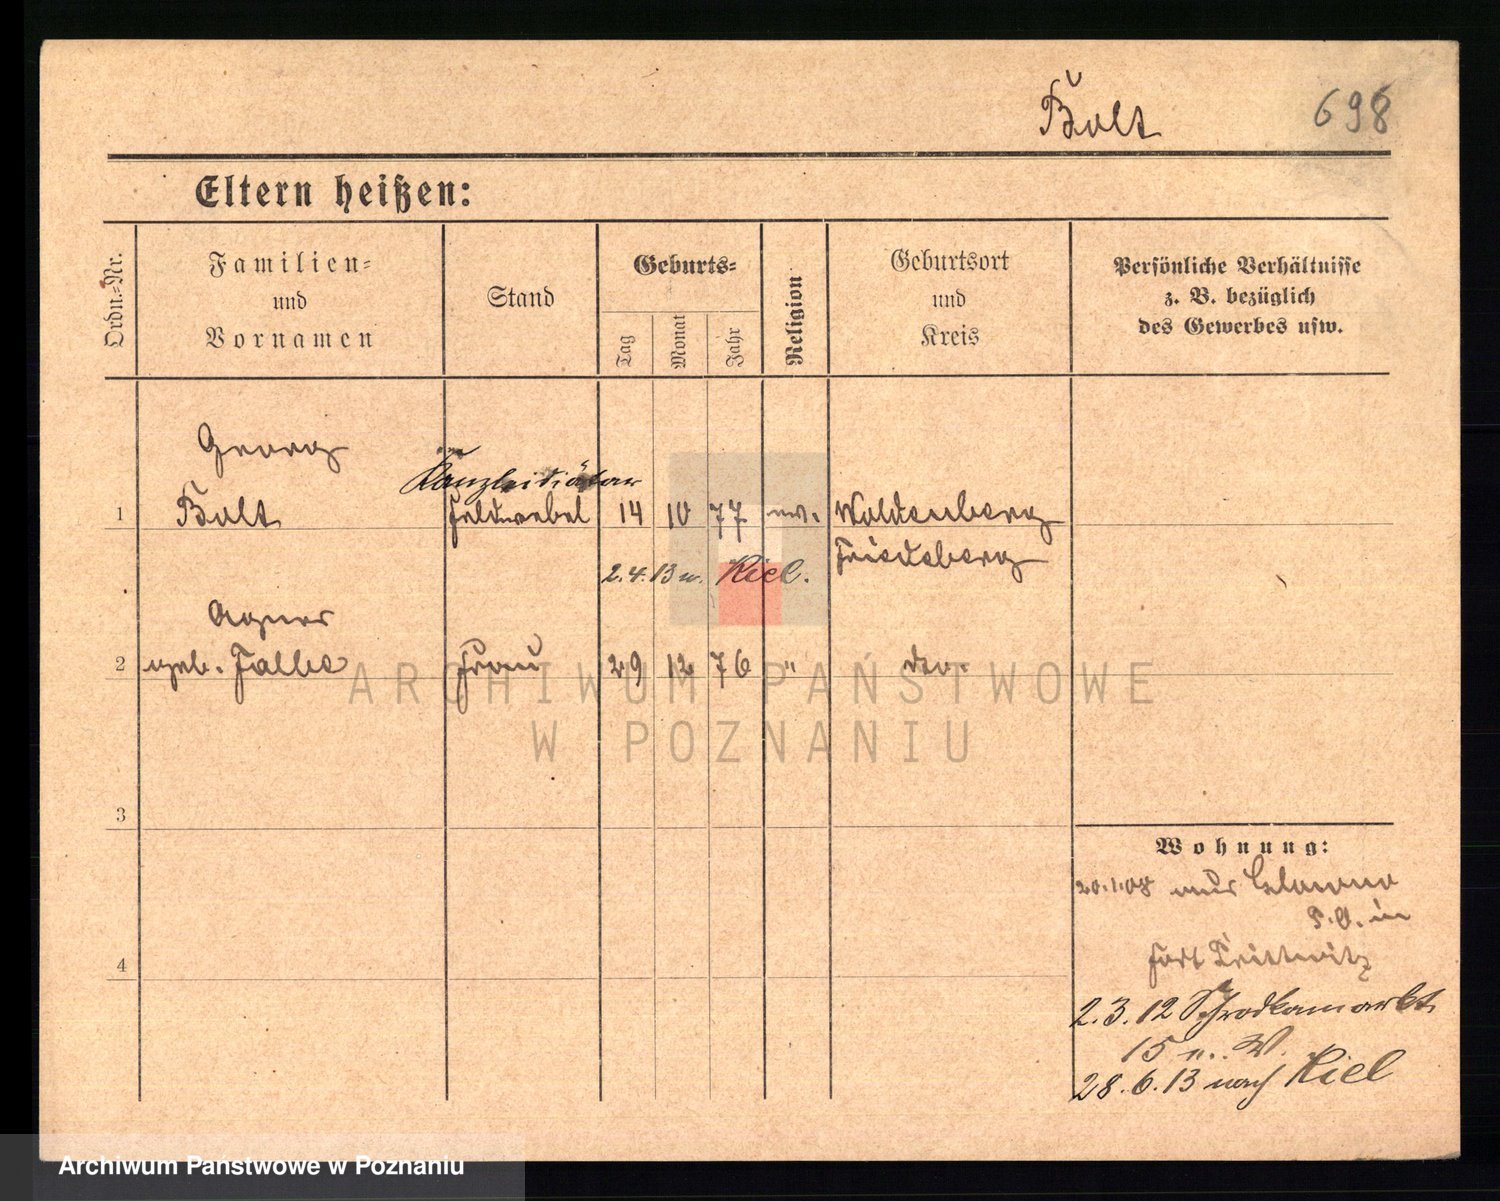 Bolt
698
Eltern heißen:
Ordn.=Nr.
Familien=
und
Vornamen
Stand
Geburts=
Tag
Monat
Jahr
Religion
Geburtsort
und
Kreis
Persönliche Verhältnisse
z. B. bezüglich
des Gewerbes usw.
Georg
Kanzleidiätar
1 Bolt Feldwebel 14 10 77 ev. Woldenberg
Friedeberg
2.4.13 n. Kiel.
Agnes
2 geb. Falbe Frau 29 12 76 " do.
ARCHIWUM PAŃSTWOWE
W POZNANIU
3
Wohnung:
20.1.08 aus
in
4
Fort Prittwitz
2.3.12 Schrodkamarkt
15 n. W.
28.6.13 nach Kiel
Archiwum Państwowe w Poznaniu